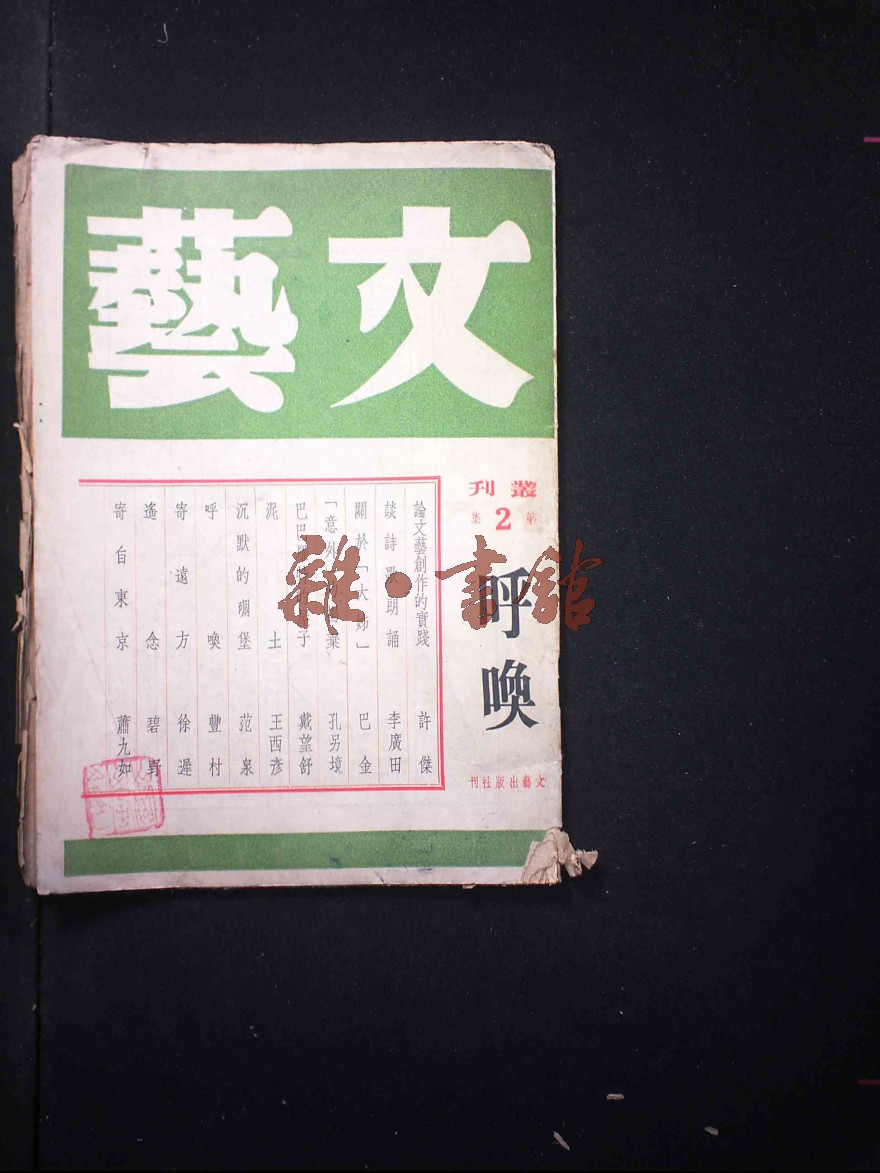 文藝
叢刊
第2集
呼喚
文藝出版社刊
論文藝創作的實踐 許傑
談詩歌朗誦 李廣田
關於「大姊」 巴金
「意外 孔另境
巴巴 子 戴望舒
泥土 王西彥
沉默的碉堡 范泉
呼喚 豐村
寄遠方 徐遲
遙念 碧野
寄自東京 蕭九如
雜·書館